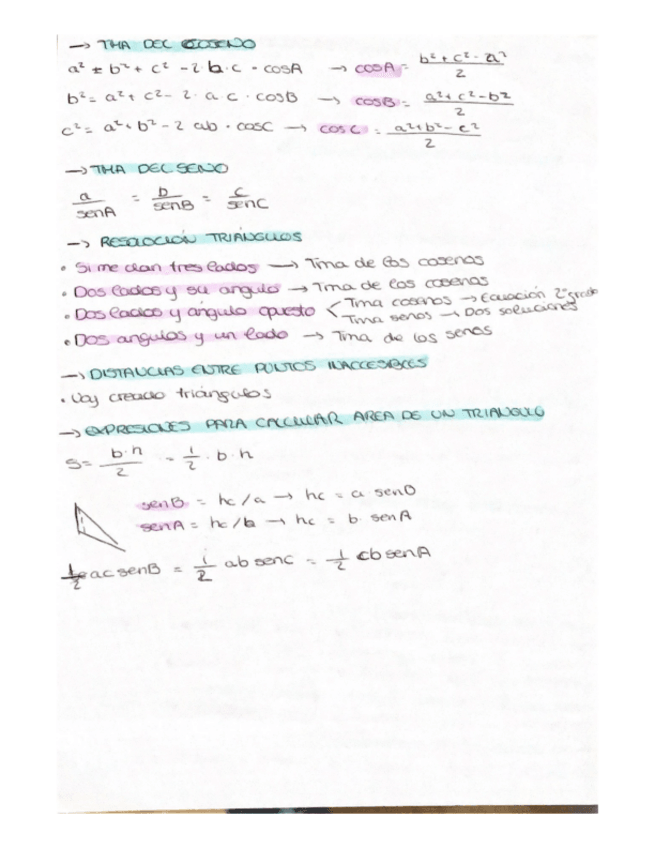 → TMA DEL COSENO
a² = b² + c² - 2·b·c · cosA → cosA = b² + c² - a² / 2
b² = a² + c² - 2·a·c · cosB → cosB = a² + c² - b² / 2
c² = a² + b² - 2ab · cosC → cosC = a² + b² - c² / 2
→ TMA DEL SENO
a / senA = b / senB = c / senC
→ RESOLUCIÓN TRIÁNGULOS
• Si me dan tres lados → Tma de los cosenos
• Dos lados y su angulo → Tma de los cosenos
• Dos lados y angulo opuesto < Tma cosenos → Ecuación 2º grado
Tma senos → Dos soluciones
• Dos angulos y un lado → Tma de los senos
→ DISTANCIAS ENTRE PUNTOS INACCESIBLES
• Voy creando triángulos
→ EXPRESIONES PARA CALCULAR AREA DE UN TRIANGULO
S = b·h / 2 = 1/2 · b·h
senB = hc/a → hc = a·senB
senA = hc/b → hc = b·senA
1/2 ac senB = 1/2 ab senC = 1/2 cb senA